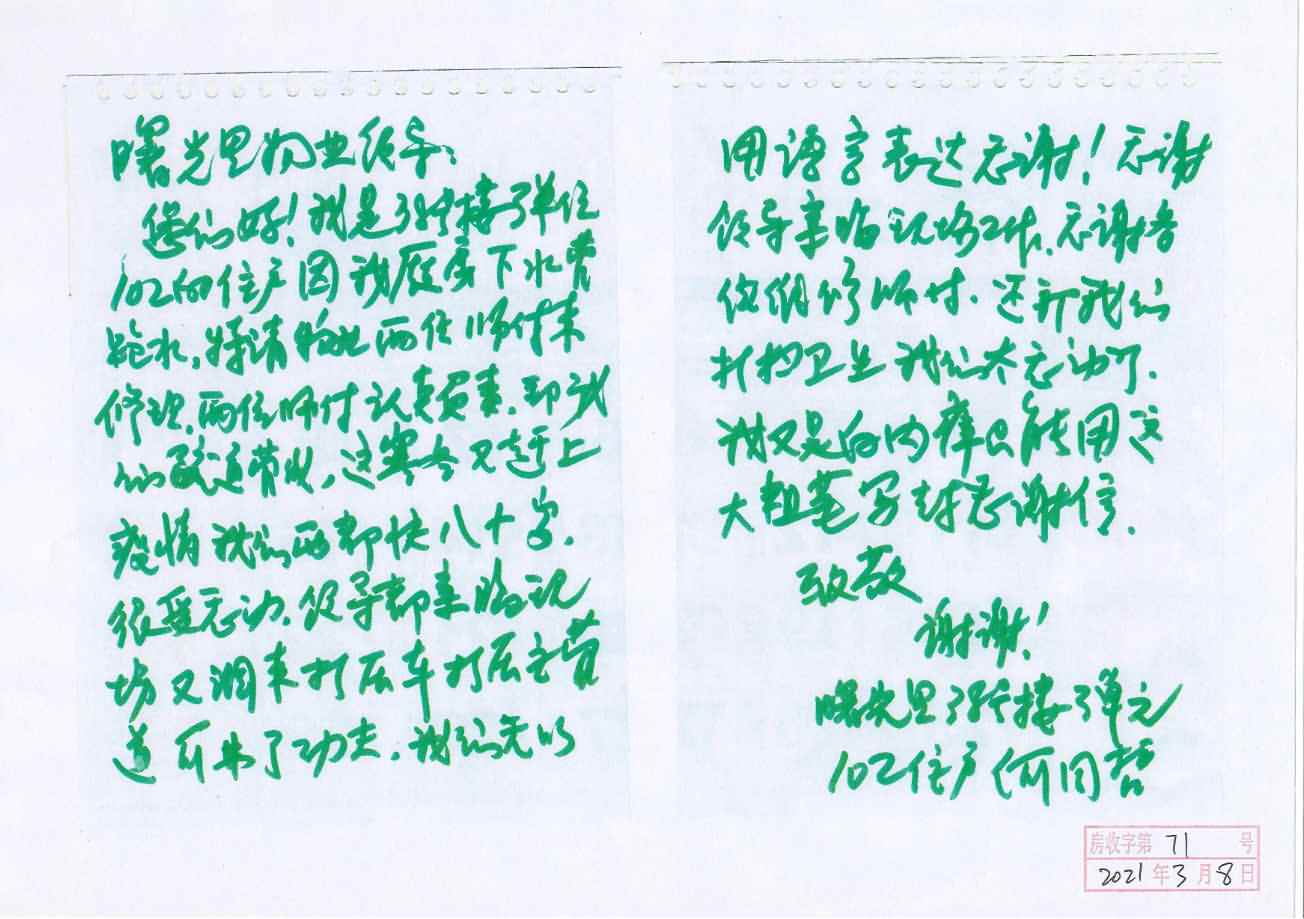 曙光里物业领导:
您们好!我是 号楼1单位
102的住户因我厨房下水管
跑水,请物业两位师付来
修理,两位师付认真负责,即 我
们 通管 ,这寒冬又赶上
疫情我们两都快八十岁,
很受感动,领导都来临现
场又调来打压车打压主管
道 了功夫,我们无以
用语言表达感谢!感谢
领导来临现场工作,感谢
修师付,还称我们
打扫卫生我们太感动了.
我又是白内障只能用这
大粗笔写封感谢信.
致敬
谢谢!
曙光里 号楼1单元
102住户何同哲
房收字第 71 号
2021年3月8日